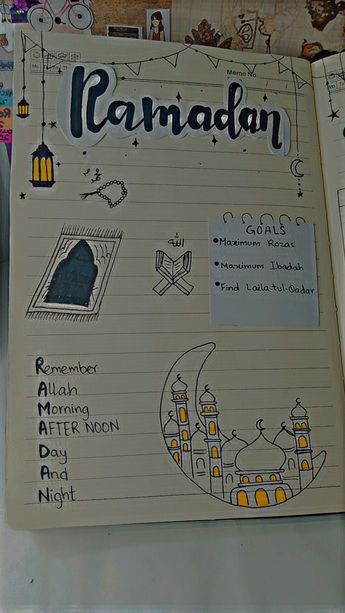 Memo No.
Ramadan
الله
GOALS
•Maximum Rozas
•Maximum Ibadah
•Find Laila-tul-Qadar
Remember
Allah
Morning
AFTER NOON
Day
And
Night